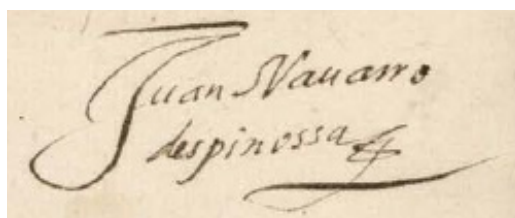 Juan Nauarro
despinossa